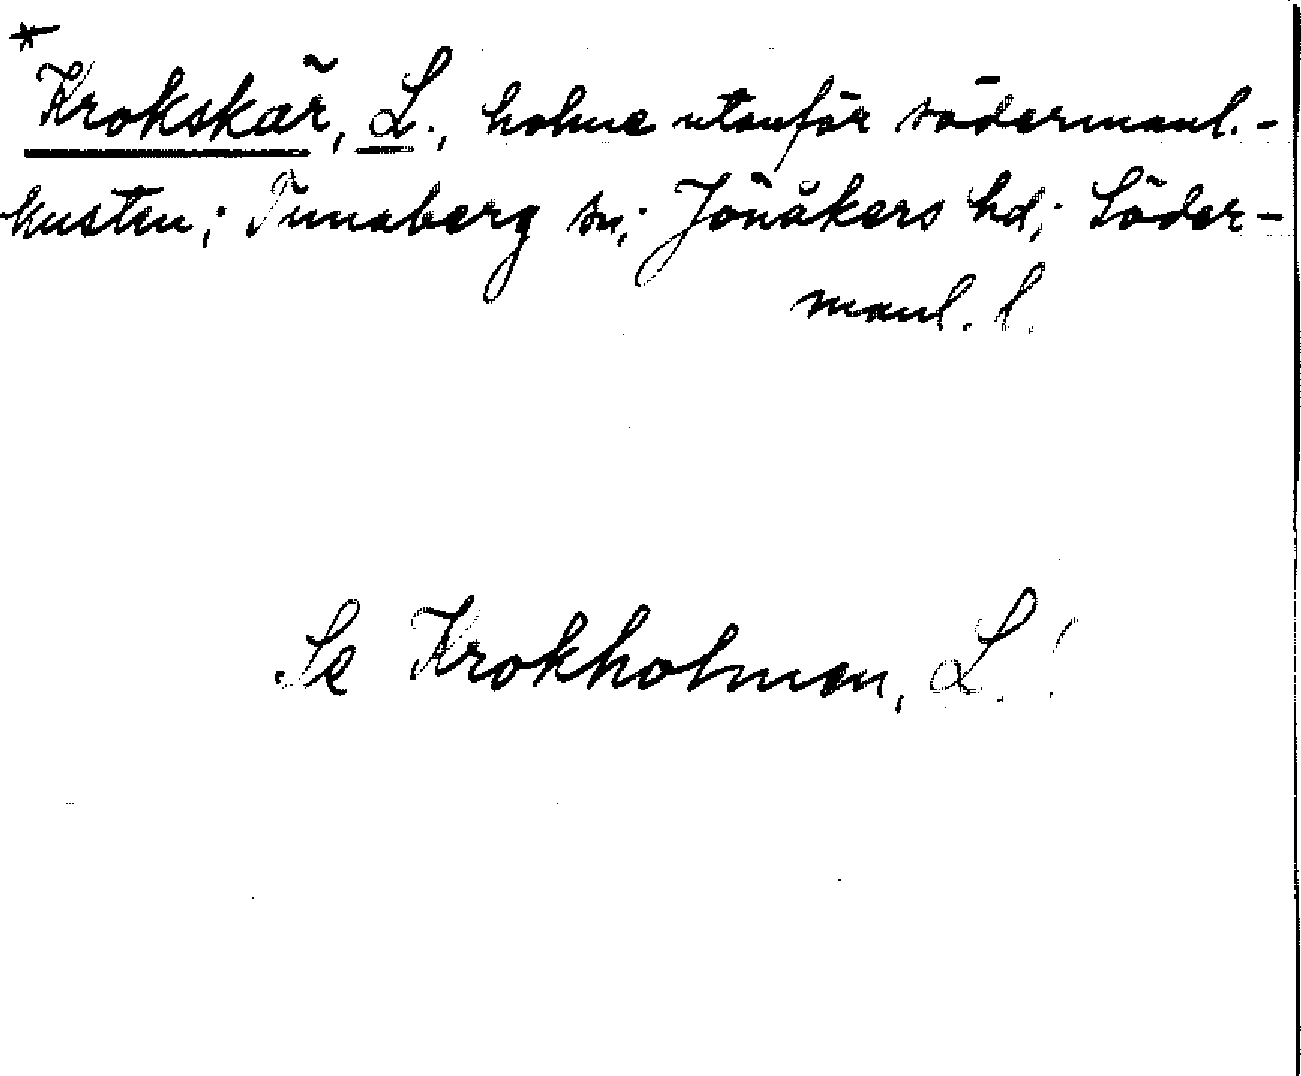 *
Krokskär, L., holme utanför södermanl.-
kusten; Tunaberg sn; Jönåkers hd; Söder-
manl. l.
Se Krokholmen, L.!